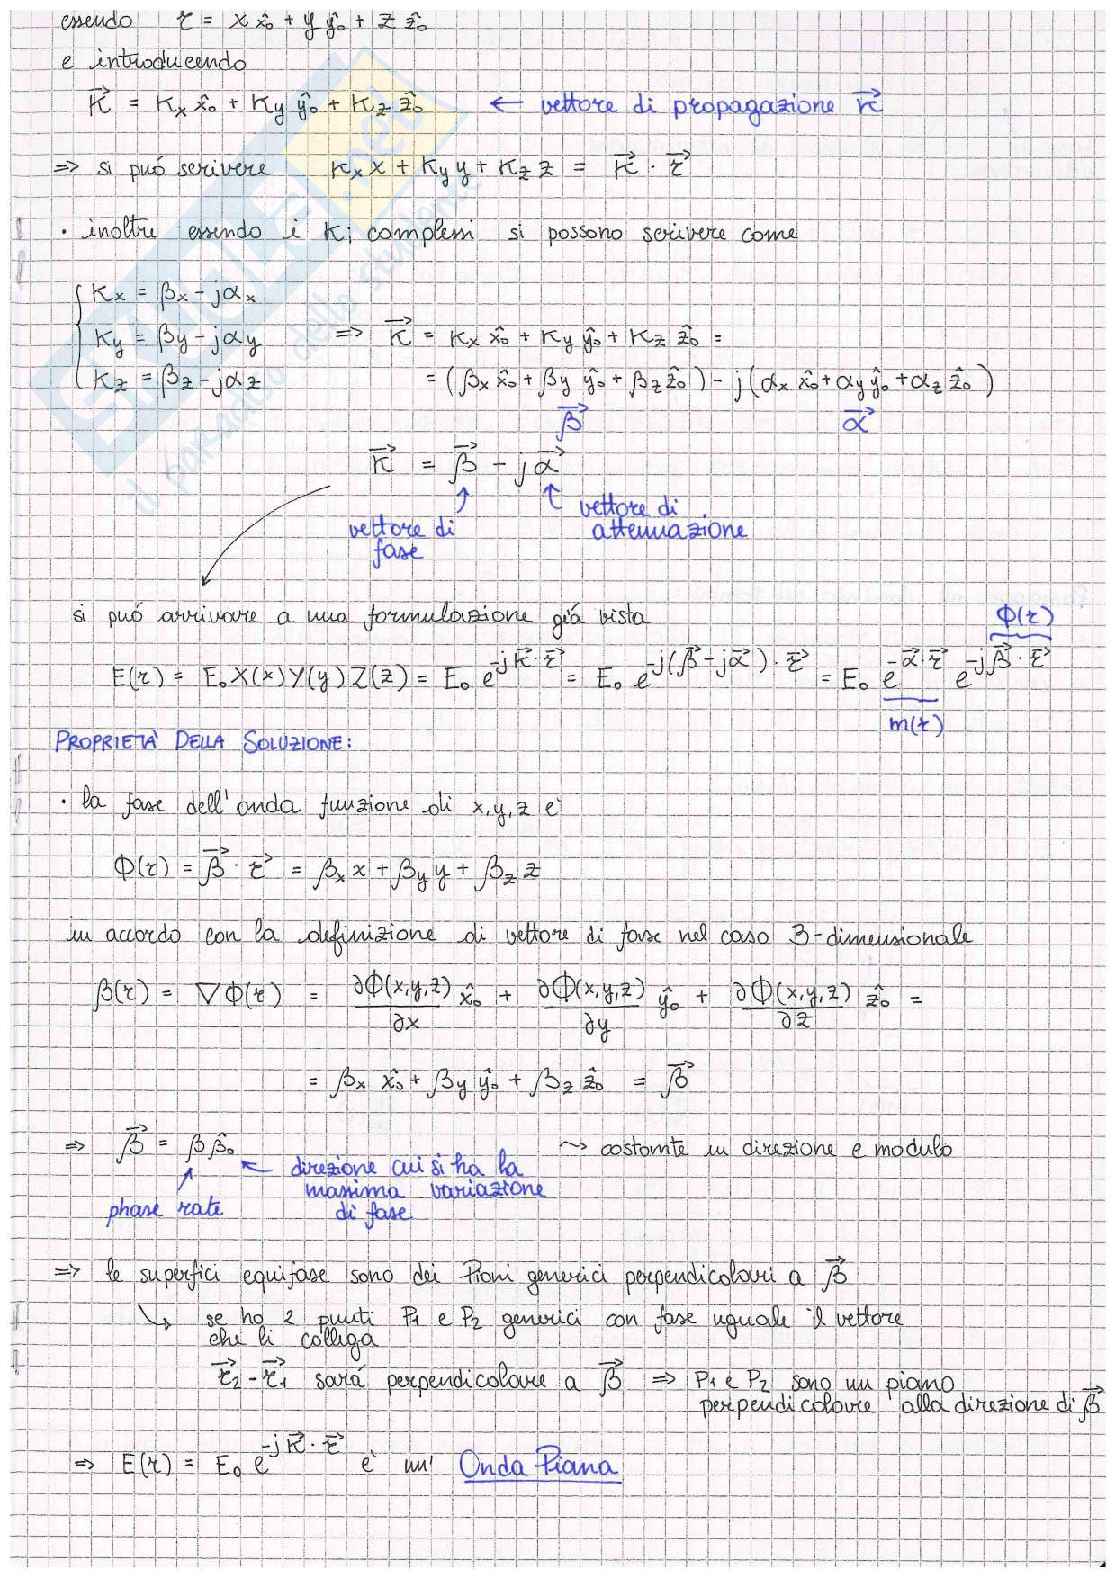 essendo r = x x̂₀ + y ŷ₀ + z ẑ₀
e introducendo
K⃗ = Kx x̂₀ + Ky ŷ₀ + Kz ẑ₀ ← vettore di propagazione K⃗
⇒ si può scrivere Kx x + Ky y + Kz z = K⃗ · r⃗
· inoltre essendo i Ki complessi si possono scrivere come
Kx = βx - jαx
Ky = βy - jαy ⇒ K⃗ = Kx x̂₀ + Ky ŷ₀ + Kz ẑ₀ =
Kz = βz - jαz = (βx x̂₀ + βy ŷ₀ + βz ẑ₀) - j(αx x̂₀ + αy ŷ₀ + αz ẑ₀)
β⃗ α⃗
K⃗ = β⃗ - jα⃗
vettore di fase
vettore di attenuazione
si può arrivare a una formulazione già vista
ϕ(r)
E(r) = E₀ X(x) Y(y) Z(z) = E₀ e^(-j K⃗ · r⃗) = E₀ e^(-j(β⃗ - jα⃗) · r⃗) = E₀ e^(-α⃗ · r⃗) e^(-jβ⃗ · r⃗)
m(r)
PROPRIETÀ DELLA SOLUZIONE:
· la fase dell'onda funzione di x,y,z è
ϕ(r) = β⃗ · r⃗ = βx x + βy y + βz z
in accordo con la definizione di vettore di fase nel caso 3-dimensionale
β(r) = ∇ϕ(r) = ∂ϕ(x,y,z)/∂x x̂₀ + ∂ϕ(x,y,z)/∂y ŷ₀ + ∂ϕ(x,y,z)/∂z ẑ₀ =
= βx x̂₀ + βy ŷ₀ + βz ẑ₀ = β⃗
⇒ β⃗ = β β̂₀ ⤳ costante in direzione e modulo
← direzione cui si ha la
massima variazione
di fase
phase rate
⇒ le superfici equifase sono dei Piani generici perpendicolari a β⃗
↳ se ho 2 punti P1 e P2 generici con fase uguale il vettore
che li collega
r⃗₂ - r⃗₁ sarà perpendicolare a β⃗ ⇒ P1 e P2 sono un piano
perpendicolare alla direzione di β⃗
⇒ E(r) = E₀ e^(-j K⃗ · r⃗) è un' Onda Piana